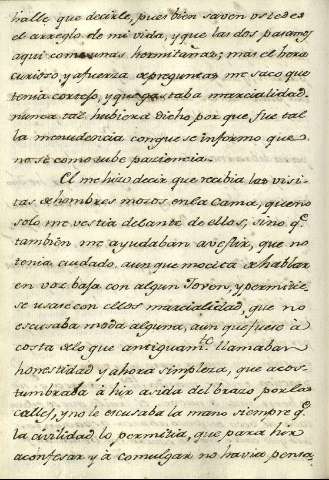 halle que decirle, pues bien saven ustedes
el arreglo de mi vida, y que las dos pasamos
aqui como unas hermitañas; mas el hora
curioso y a fuerza de preguntas me saco que
tenia cortejo, y que gastaba marcialidad.
nunca tal hubiera dicho por que, fue tal
la menudencia con que se informo que
no sè como tube paziencia.
El me hizo decir que recibia las visi-
tas de hombres mozos en la Cama, que no
solo me vestia delante de ellos, sino q.e
tambien me ayudaban a vestir, que no
tenia cuidado aun que mocita de hablar
en voz baja con algun Joven, y permitir
se usase con ellos marcialidad, que no
escusaba moda alguna, aun que fuese à
costa de lo que antiguam.te llamaban
honestidad y ahora simpleza, que acos-
tumbraba à hir asida del brazo por las
calles, y no le escusaba la mano siempre q.e
la civilidad lo permitia, que para hir
a confesar y à comulgar no havia pensa